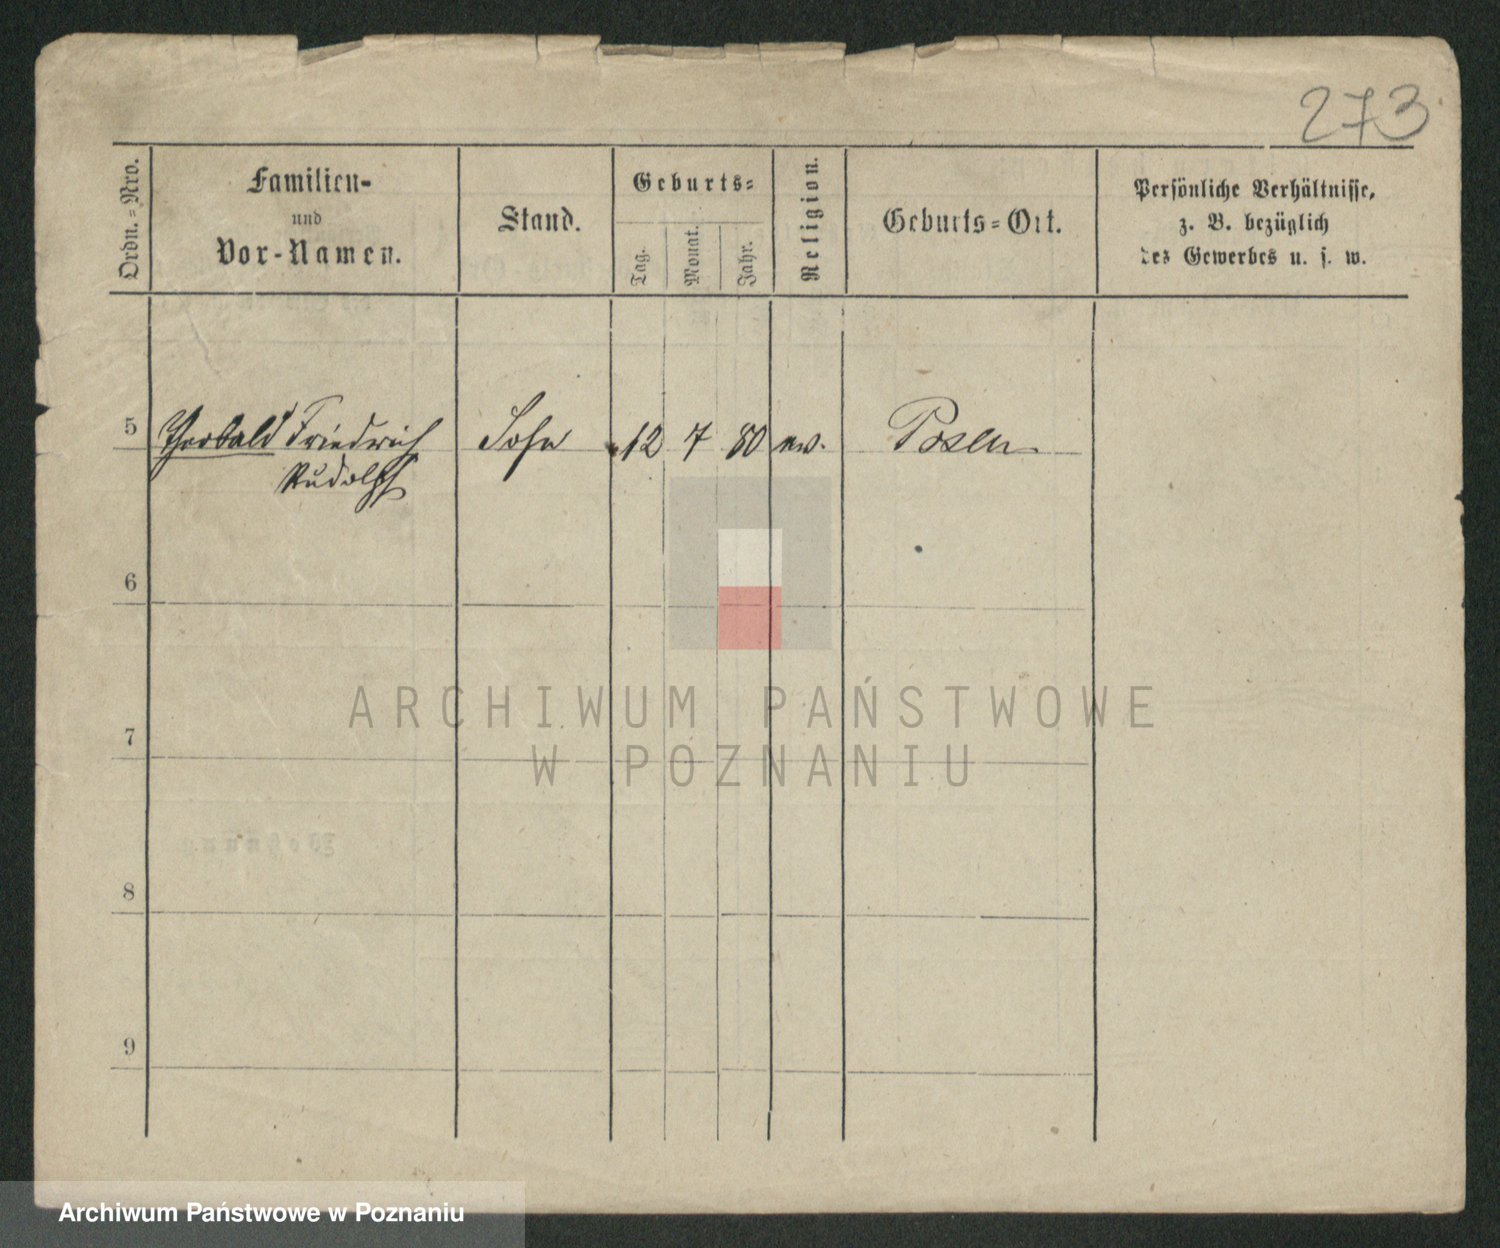 273
Ordn.=Nro.
Familien-
und
Vor-Namen.
Stand.
Geburts=
Tag.
Monat.
Jahr.
Religion.
Geburts=Ort.
Persönliche Verhältnisse,
z. B. bezüglich
des Gewerbes u. s. w.
5 Theobald Friedrich Sohn 12 7 80 ev. Posen
Rudolph
6
ARCHIWUM PAŃSTWOWE
7
W POZNANIU
8
9
Archiwum Państwowe w Poznaniu